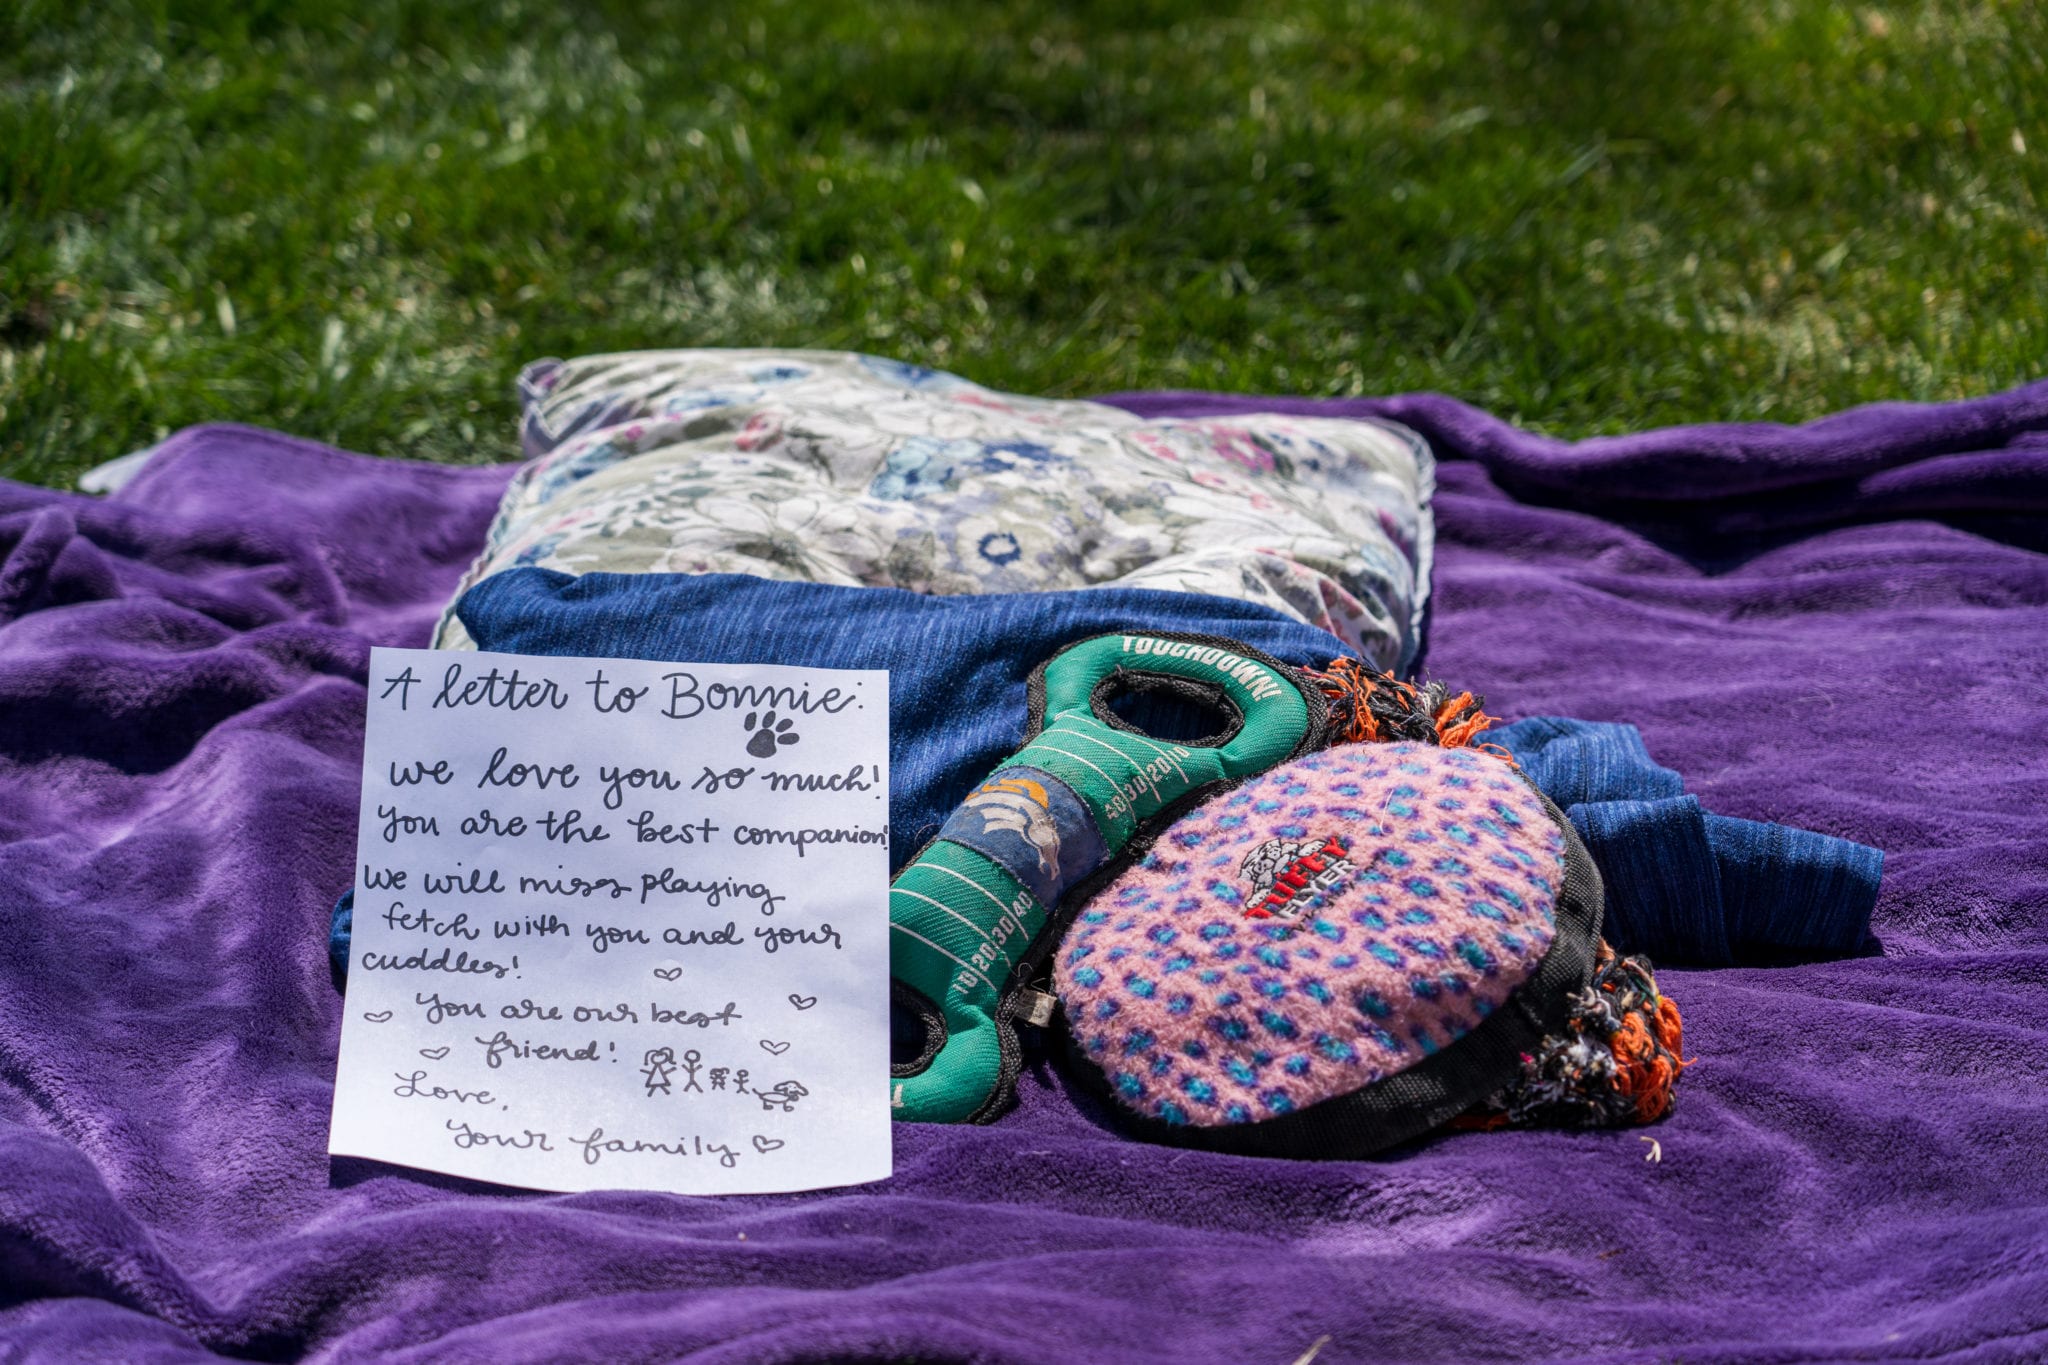 A letter to Bonnie:
we love you so much!
You are the best companion!
We will miss playing
fetch with you and your
cuddles!
You are our best
friend!
Love,
your family
TOUCHDOWN!
40 30 20 10
10 20 30 40
TUFFY
FLYER